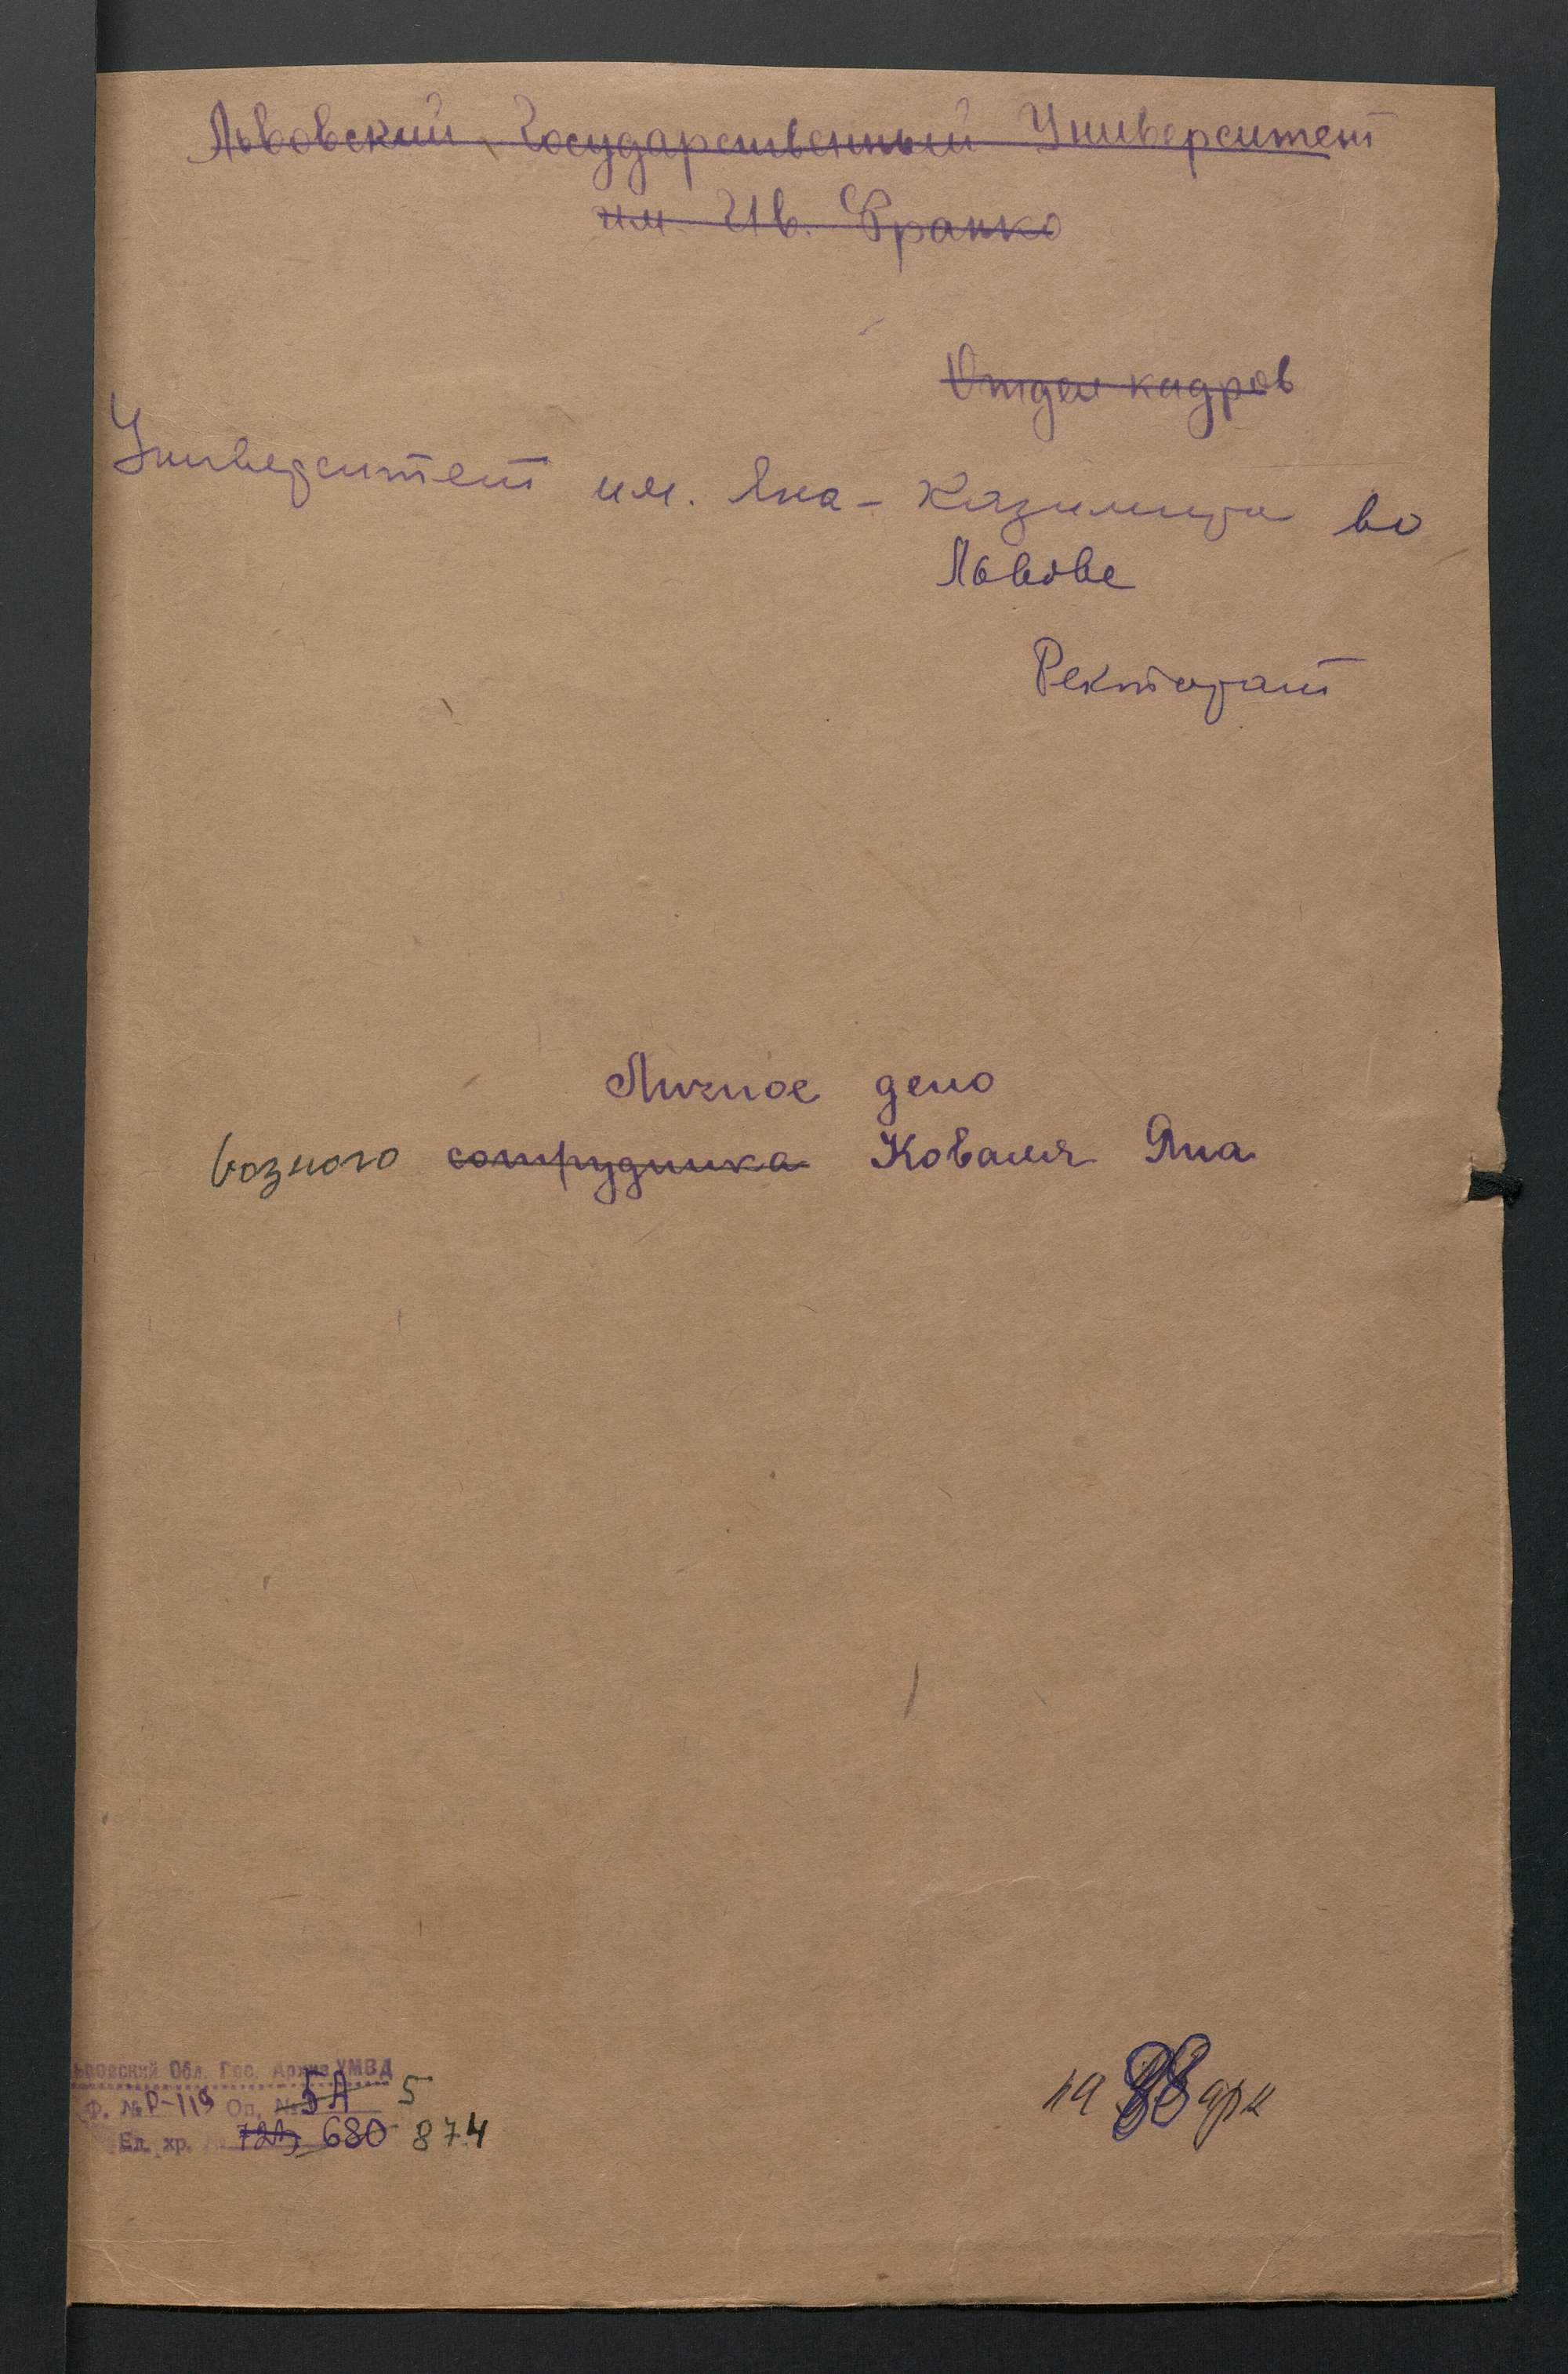 Львовский Государственный Университет
им. Ив. Франко
Отдел кадров
Университет им. Яна-Казимира во
Львове
Ректорат
Личное дело
возного сотрудника Коваля Яна
ьвовский Обл. Гос. Архив УМВД
Ф. № Р-119 Оп. № 5А 5
Ед. хр. № 723 680 874
на 88 арк